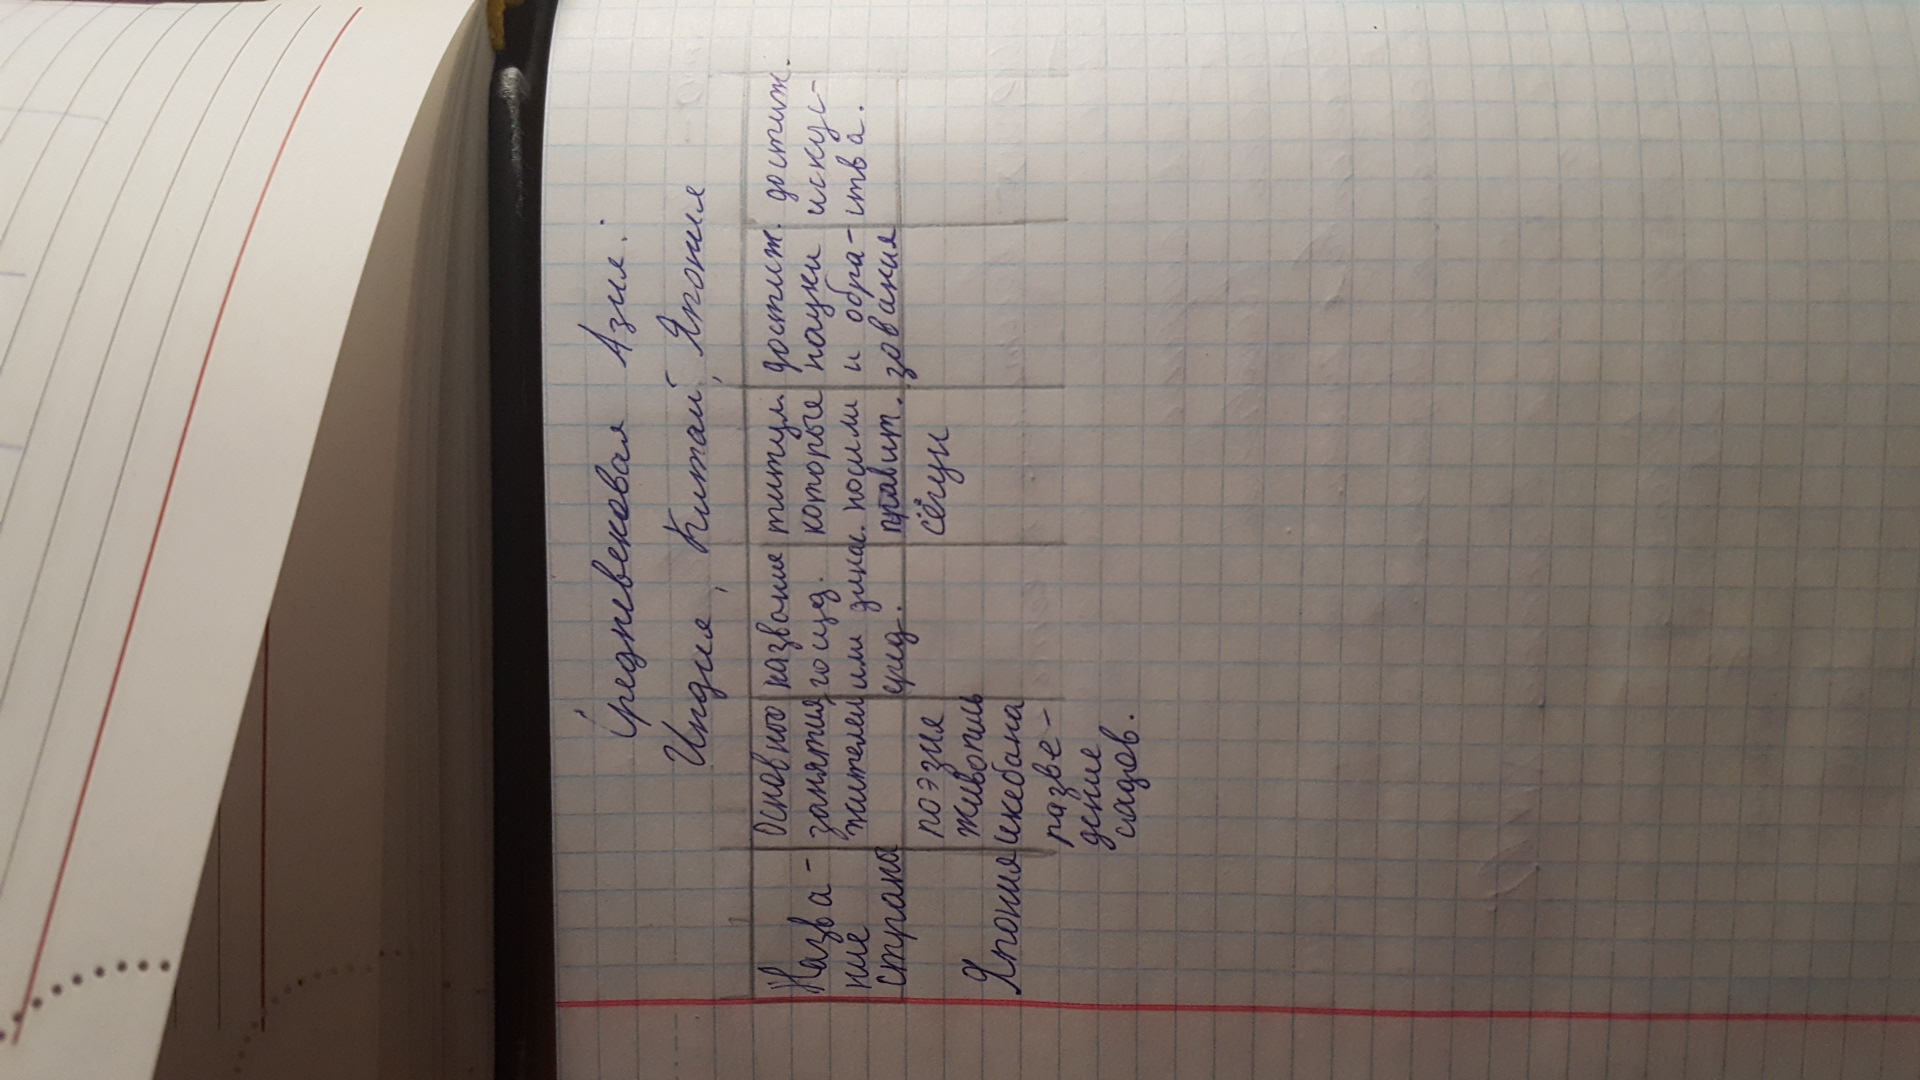 Средневековая Азия:
Индия, Китай, Япония
Назва-
ние
страна
Основное
занятия
жителей
название
госуд.
или динас.
сред.
титул.
которые
носили
правит.
достиж.
науки
и обра-
зования
достиж.
искус-
ства.
Япония
поэзия
живопись
икебана
разве-
дение
садов.
сёгун